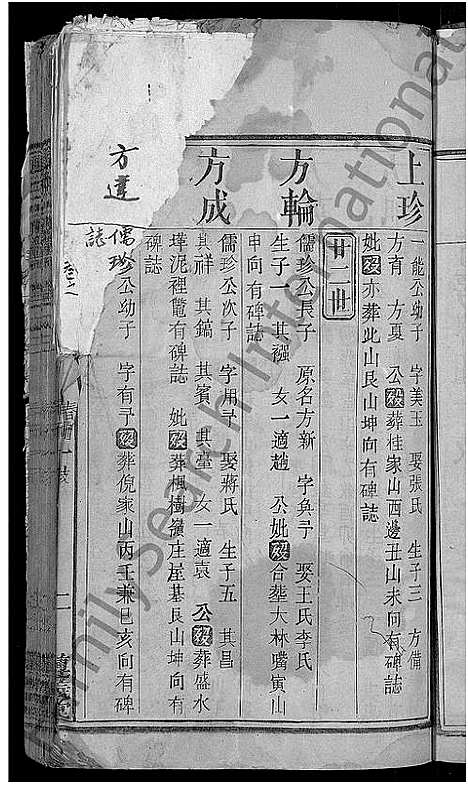 上珍
一能公幼子 字美玉 娶張氏 生子三 方備
方育 方夏 公歿葬桂家山西邊丑山未向有碑誌
妣歿亦葬此山艮山坤向有碑誌
廿二世
方輪
儒珍公長子 原名方新 字奐予 娶王氏李氏
生子一 其襁 女一適趙 公妣歿合塟大林嘴寅山
申向有碑誌
方成
儒珍公次子 字用予 娶蔣氏 生子五 其昌
其祥 其鎦 其賓 其臺 女一適袁 公歿葬盛水
墿泥裡氹有碑誌 妣歿葬楓樹嶺庄屋基艮山坤向有
碑誌
方達
儒珍公幼子 字有予歿葬倪家山丙壬兼巳亥向有碑
誌
二
familysearch International